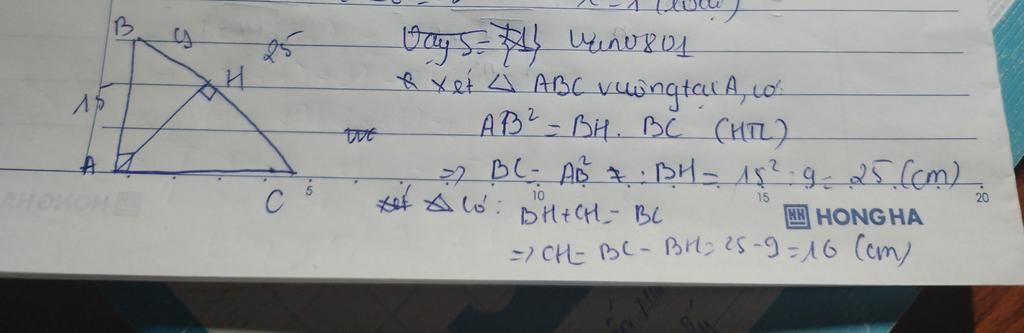 Vậy S = {1}
B 9 25
H
* xét △ ABC vuông tại A, có
15
AB² = BH. BC (HTL)
A
=> BC = AB² : BH = 15² : 9 = 25 (cm)
C 5 10 15 20
xét △ có: BH + CH = BC
HONG HA
=> CH = BC - BH = 25 - 9 = 16 (cm)